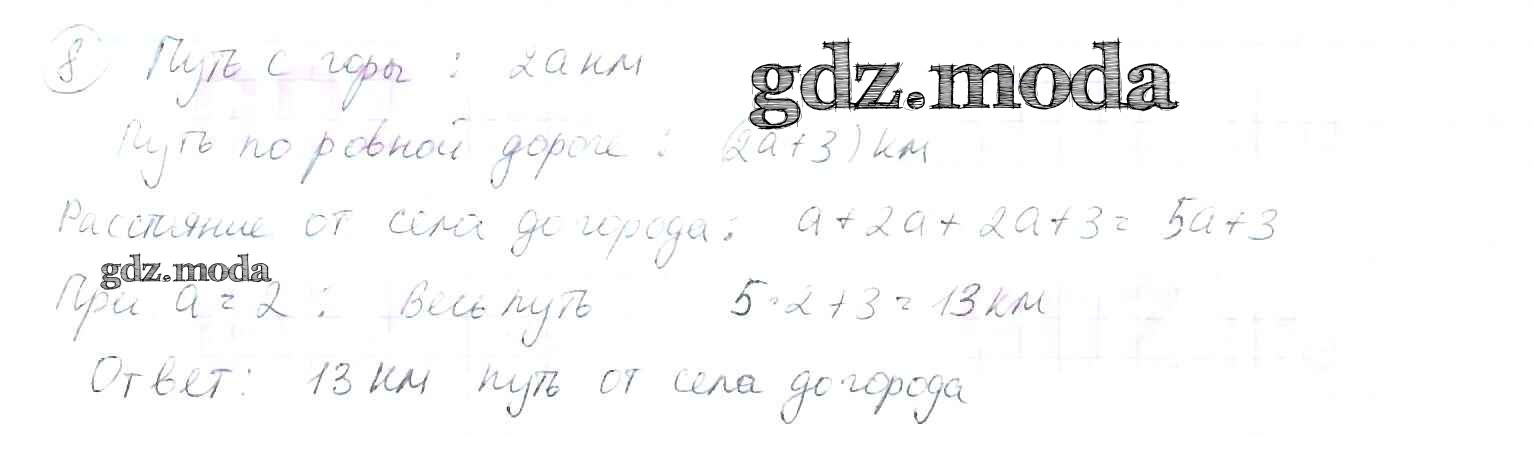 8 Путь с горы : 2а км
gdz.moda
Путь по ровной дороге : (2а+3) км
Расстояние от села до города: а+2а+2а+3= 5а+3
gdz.moda
При а=2 : Весь путь 5·2+3=13 км
Ответ: 13 км путь от села до города